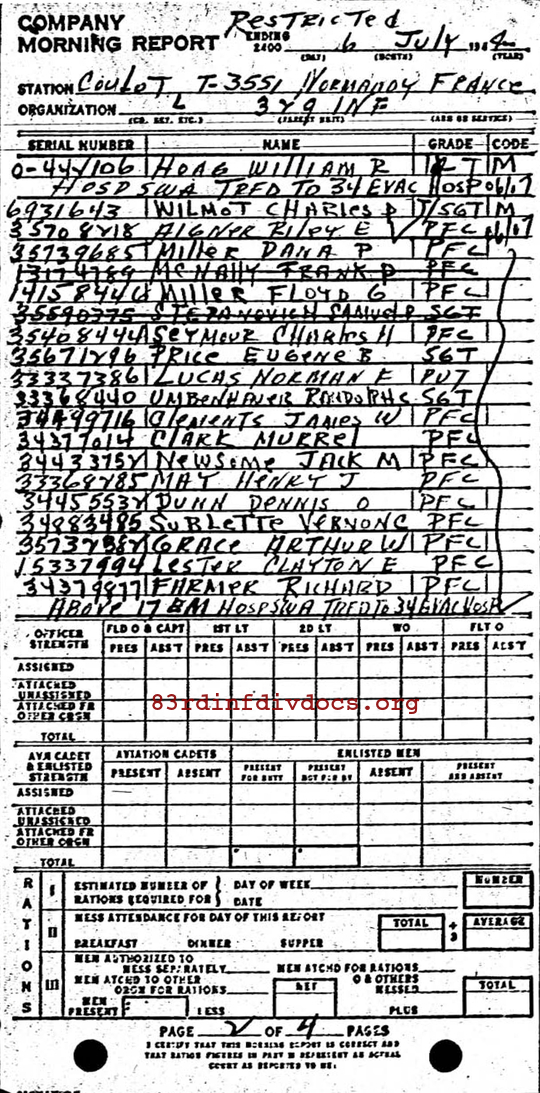 Restricted
COMPANY
MORNING REPORT ENDING 2400 6 July 1944
(DAY) (MONTH) (YEAR)
STATION Coulot T-3551 Normandy France
ORGANIZATION L 329 INF
(CO. DET. ETC.) (PARENT UNIT) (ARM OR SERVICE)
SERIAL NUMBER NAME GRADE CODE
HOAG WILLIAM R LT M
HOSP SWA TRFD TO 34 EVAC HOSP
6931643 WILMOT CHARLES T/SGT M
35708218 AIGNER RILEY E PFC
35739685 MILLER DANA P PFC
13174789 MCNALLY FRANK PFC
MILLER FLOYD G PFC
35590775 STEPANOVICH SAMUEL SGT
35408444 SEYMOUR CHARLES H PFC
35671296 PRICE EUGENE B SGT
33337386 LUCAS NORMAN E PVT
33368440 UMBENHAUER SGT
34499716 CLEMENTS JAMES W PFC
34377014 CLARK MURREL PFC
34433752 NEWSOME JACK M PFC
33368285 MAY HENRY J PFC
34455532 DUNN DENNIS O PFC
34883495 SUBLETTE VERNON C PFC
35732382 GRACE ARTHUR W PFC
15337994 LESTER CLAYTON E PFC
34379877 FARMER RICHARD PFC
ABOVE 17 EM HOSP SWA TRFD TO 34 EVAC HOSP
OFFICER STRENGTH FLD O & CAPT 1ST LT 2D LT WO FLT O
PRES ABS'T PRES ABS'T PRES ABS'T PRES ABS'T PRES ABS'T
ASSIGNED
ATTACHED UNASSIGNED
ATTACHED FR OTHER ORGN
83rdinfdivdocs.org
TOTAL
AVN CADET & ENLISTED STRENGTH AVIATION CADETS ENLISTED MEN
PRESENT ABSENT PRESENT FOR DUTY PRESENT NOT FOR DY ABSENT PRESENT AND ABSENT
ASSIGNED
ATTACHED UNASSIGNED
ATTACHED FR OTHER ORGN
TOTAL
RATIONS
I ESTIMATED NUMBER OF RATIONS REQUIRED FOR DAY OF WEEK DATE NUMBER
II MESS ATTENDANCE FOR DAY OF THIS REPORT TOTAL ÷ 3 AVERAGE
BREAKFAST DINNER SUPPER
III MEN AUTHORIZED TO MESS SEPARATELY MEN ATCHD FOR RATIONS
MEN ATCHD TO OTHER ORGN FOR RATIONS NET O & OTHERS MESSED TOTAL
MEN PRESENT LESS PLUS
PAGE 2 OF 4 PAGES
I CERTIFY THAT THIS MORNING REPORT IS CORRECT AND
THAT RATION FIGURES IN PART II REPRESENT AN ACTUAL
COUNT AS REPORTED TO ME: